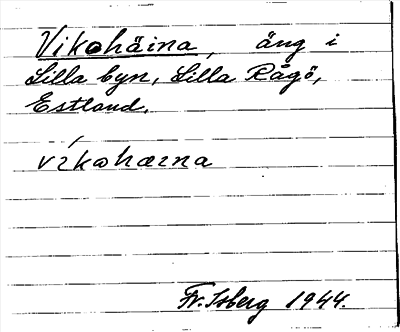 Vikohäina, äng i
Lilla byn, Lilla Rågö,
Estland.
víkohæina
Fr. Isberg 1944.